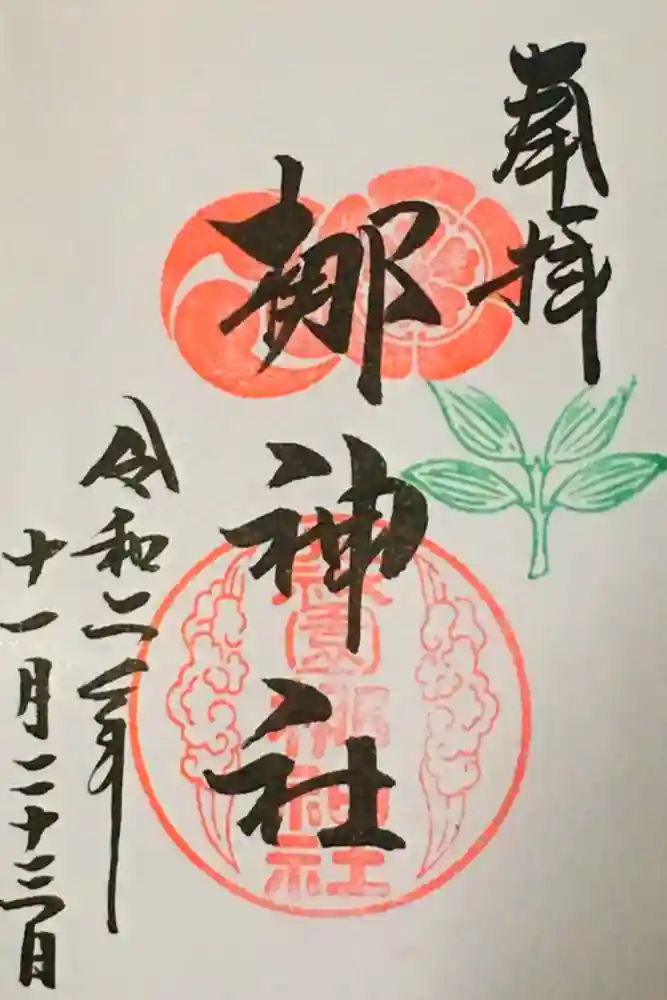 奉拝
梛神社
園梛神社
令和二年
十一月二十三日